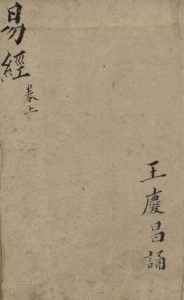 易經
卷上
王慶昌誦